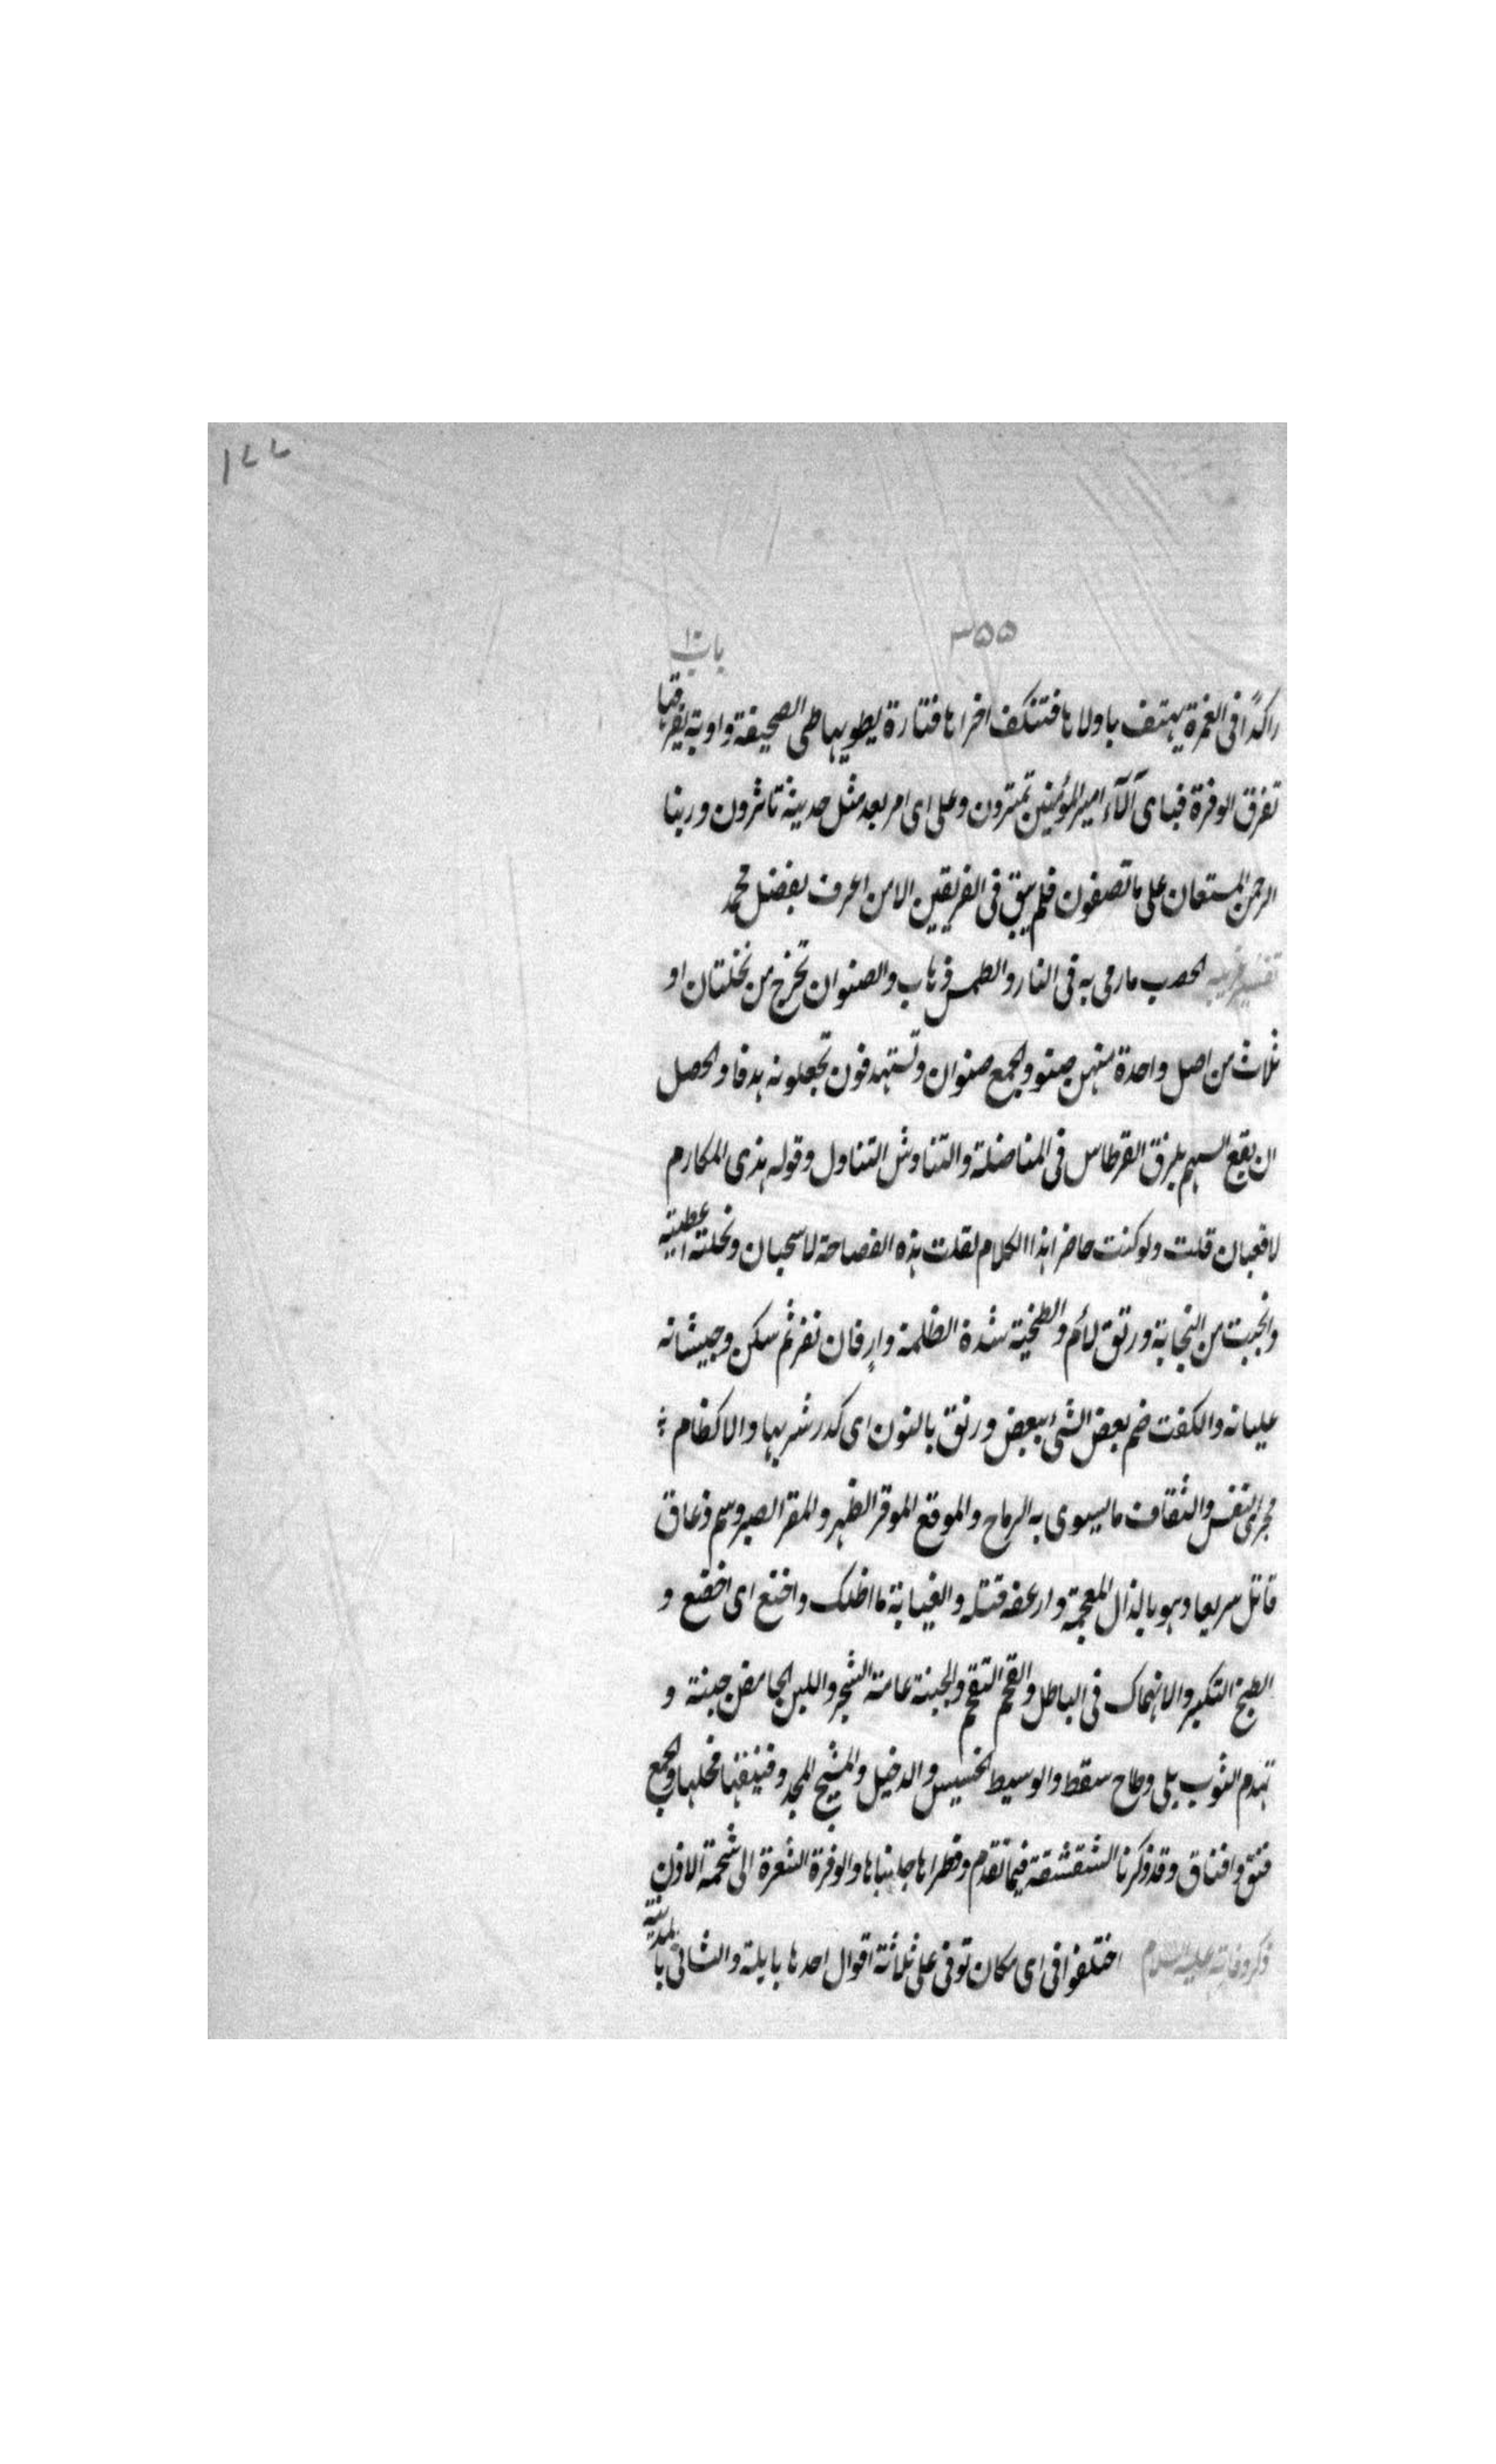 ١٧٧
٣٥٥
باب ١٠
راكدًا فى الغمرة يهتف باولاها فتنكف اخراها فتارة يطويها طى الصحيفة واوبة يفرقها
تفرق الوفرة فباى آلآء اميرالمؤمنين تمترون وعلى اى امر بعد مثل حديثه تاثرون وربنا
الرحمن المستعان على ما تصفون فلم يبق فى الفريقين الا من اعرف بفضل محمد
تفسير غريبه الحصب ما رمى به فى النار والطمس ذهاب والصنوان تخرج من نخلتان او
ثلاث من اصل واحدة منهن صنو والجمع صنوان وتستهدفون تجعلونه هدفا والحصل
ان يقع السهم بلزق القرطاس فى المناضلة والتناوش التناول وقوله هذى المكارم
لا قعبان قلت ولو كنت حاضر هذا الكلام لقلت هذه الفصاحة لا سحبان ونحلته اعطيته
وانجبت من النجابة ورتق لائم والطخية شدة الظلمة وارفان نفر ثم سكن وجيشانه
غليانه والكفت ضم بعض الشئ ببعض ورنق بالنون اى كدر شربها والاكظام
مجرى النفس والثقاف ما يسوى به الرماح والموقع الموقر الظهر والمقر الصبر وسم ذعاق
قاتل سريعا وهو بالذال المعجمة وارعفه قتله والغيابة ما اظلك واخنع اى اخضع و
الطيخ التكبر والانهماك فى الباطل والقحم التقحم والجبنة عامة الشجر واللبن الحامض جبنة و
تهدم الثوب بلى وطاح سقط والوسيط الخسيس والدخيل والمشيح المجد وفنيقها فحلها والجمع
فنق وافناق وقد ذكرنا الشقشقة فيما تقدم وقطراها جانباها والوفرة الشعرة الى شحمة الاذن
ذكر وفاته عليه السلام اختلفوا فى اى مكان توفى على ثلاثة اقوال احدها بايلة والثانى بالمدينة